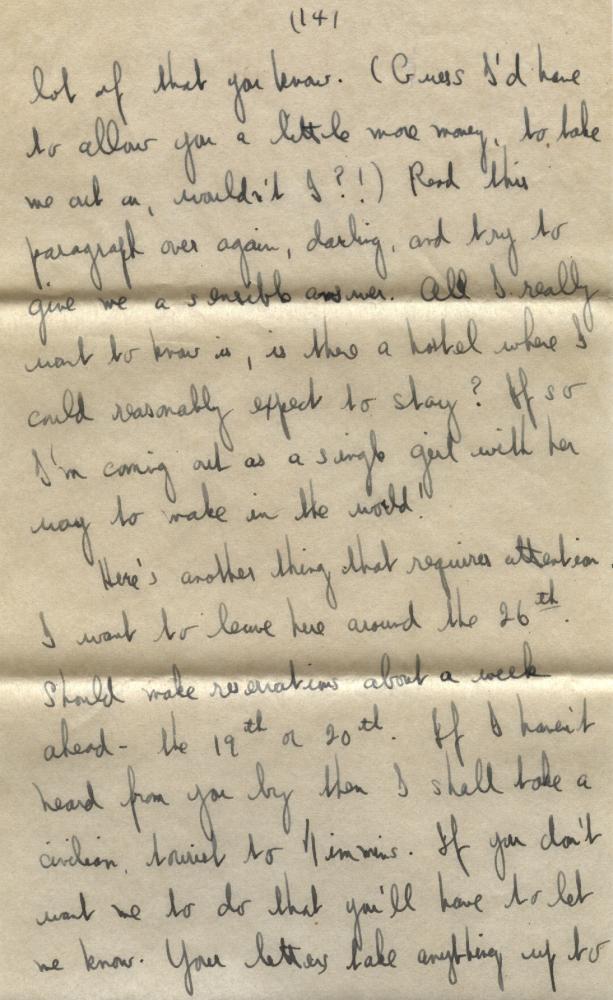 (14)
lot of that you know. (Guess I'd have
to allow you a little more money, to take
me out on, wouldn't I?!) Read this
paragraph over again, darling, and try to
give me a sensible answer. All I really
want to know is, is there a hostel where I
could reasonably expect to stay? If so
I'm coming out as a single girl with her
way to make in the world!
Here's another thing that requires attention.
I want to leave here around the 26th.
Should make reservations about a week
ahead - the 19th or 20th. If I haven't
heard from you by then I shall take a
civilian, tourist to Timmins. If you don't
want me to do that you'll have to let
me know. Your letters take anything up to